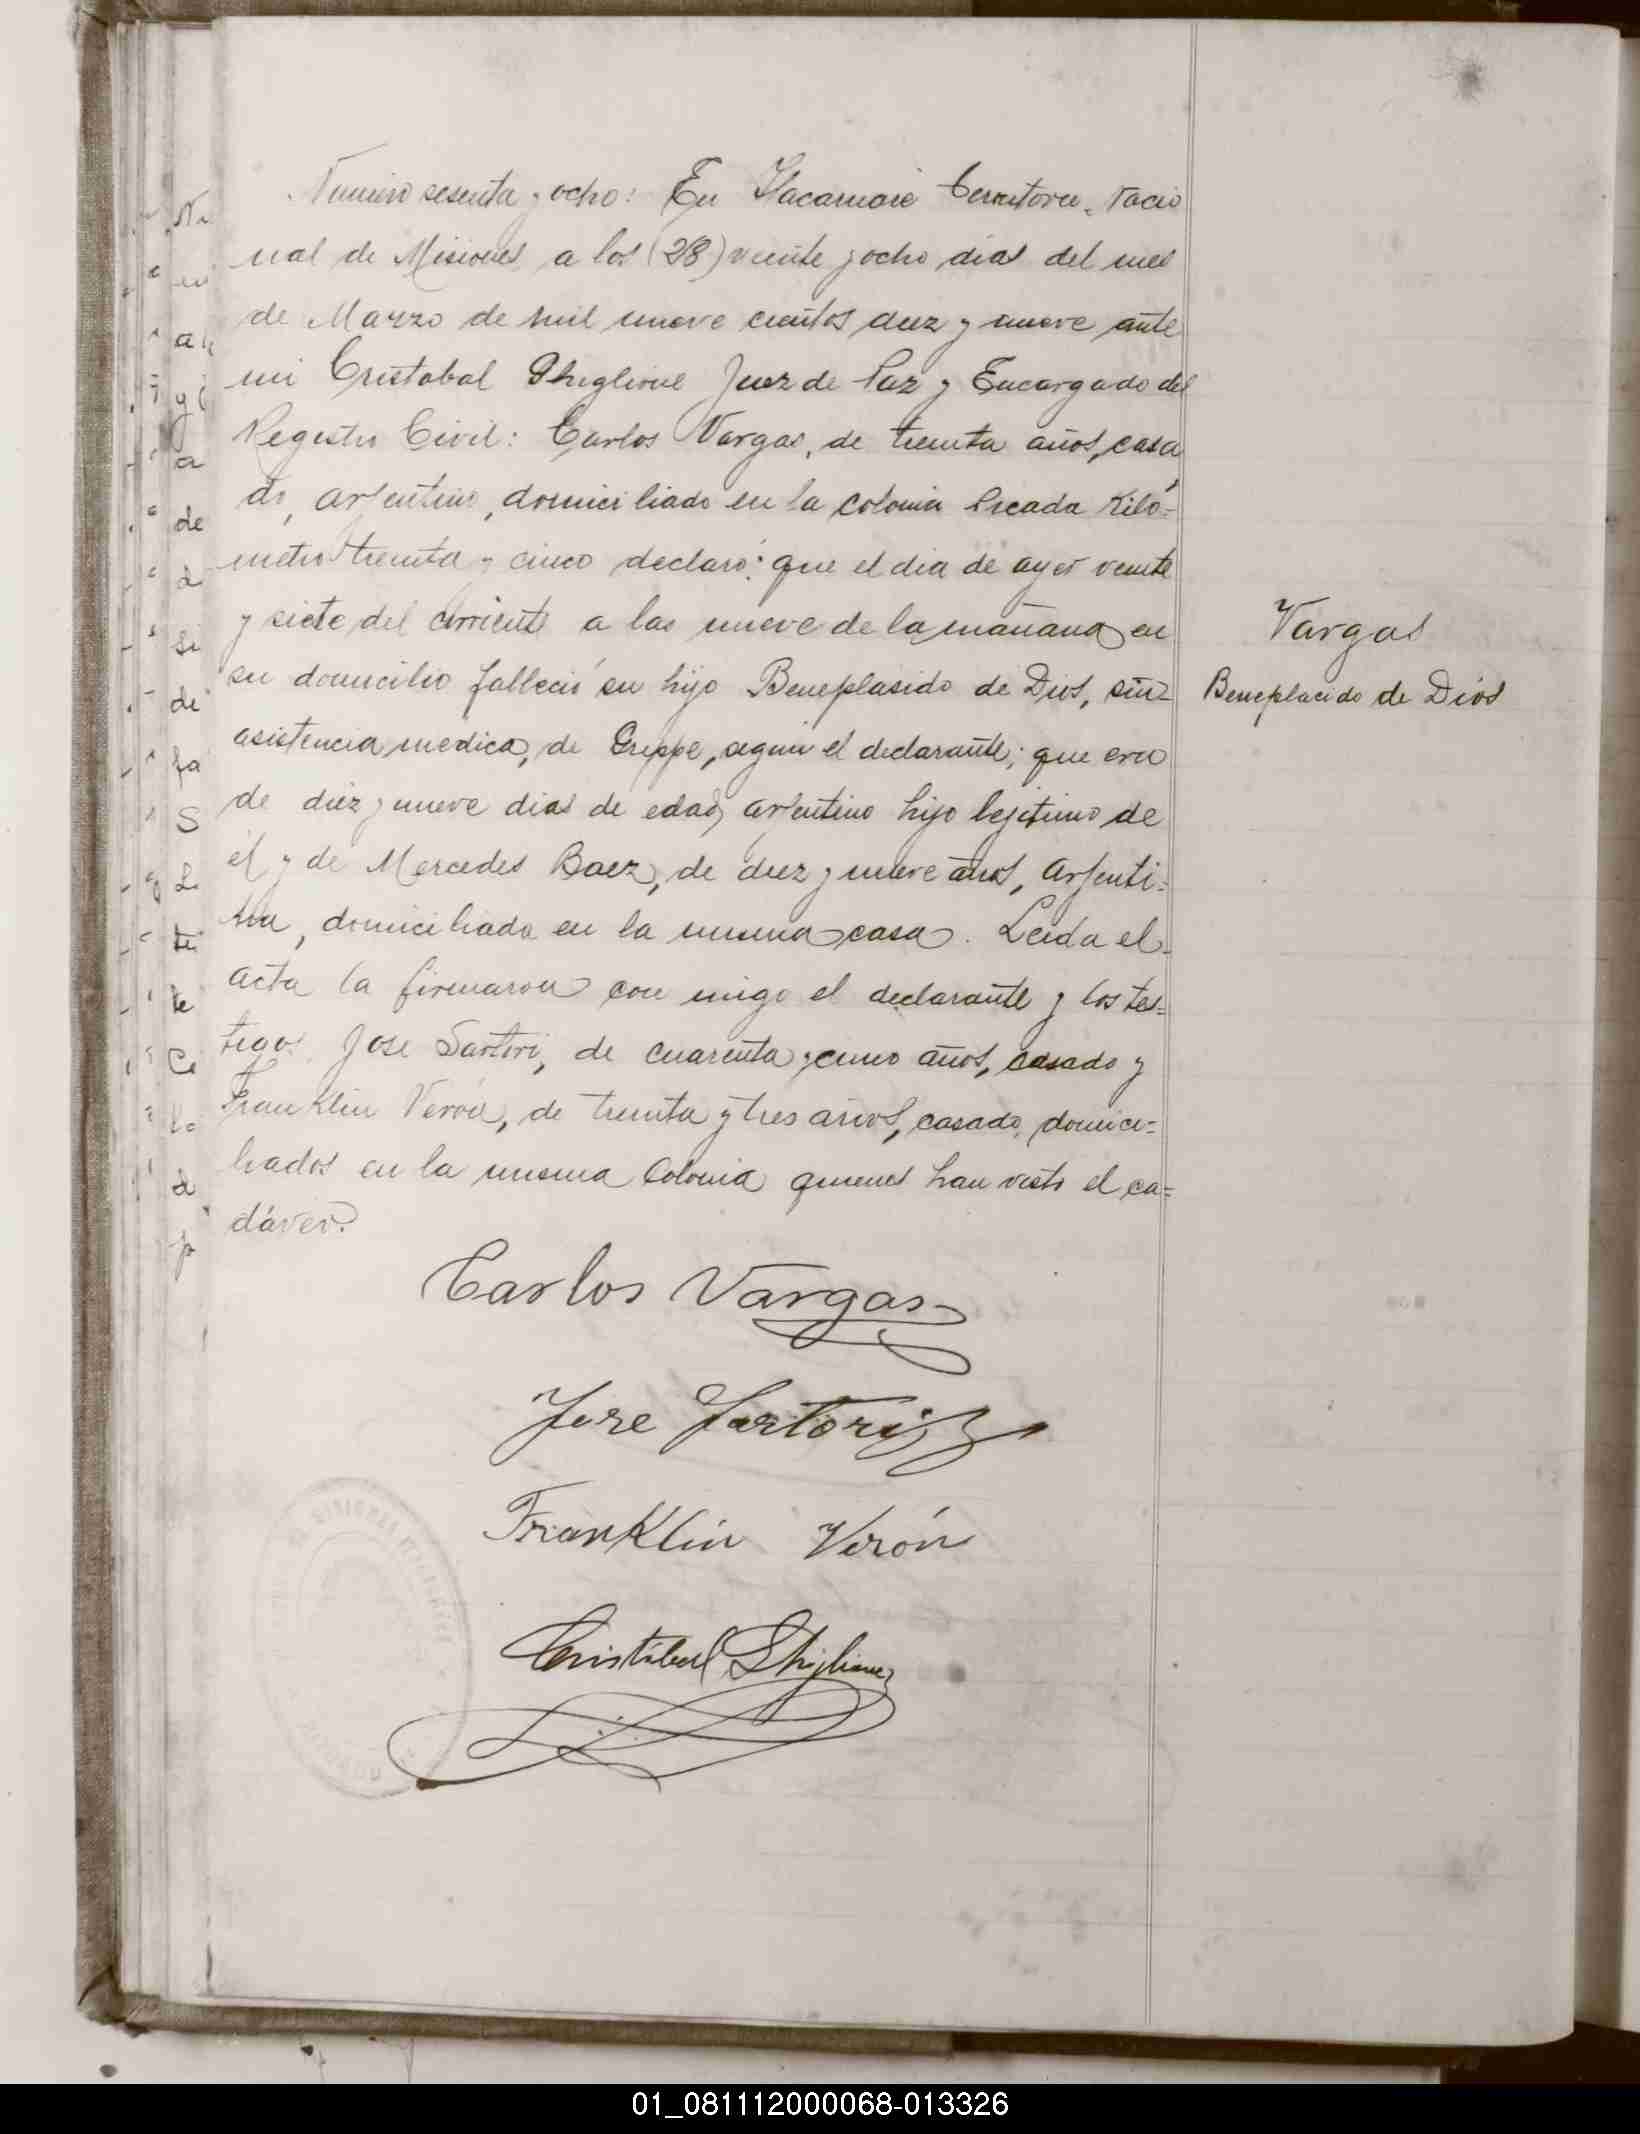 Número sesenta y ocho: En Yacamaré Territorio Nacio
nal de Misiones, a los (28) veinte y ocho dias del mes
de Marzo de mil nueve cientos diez y nueve ante
mi Cristobal Ghiglione Juez de Paz y Encargado del
Registro Civil: Carlos Vargas, de treinta años, casa
do, arjentino, domiciliado en la colonia Picada Kiló=
metro treinta y cinco declaró: que el dia de ayer veinte
y siete del corriente a las nueve de la mañana en
su domicilio falleció su hijo Beneplasido de Dios, sin
asistencia medica, de Greppe, segun el declarante; que era
de diez y nueve dias de edad, arjentino hijo lejitimo de
él y de Mercedes Baez, de diez y nueve años, arjenti=
na, domiciliada en la misma casa. Leida el
acta la firmaron con migo el declarante y los tes=
tigos Jose Sartori, de cuarenta y cinco años, casado y
Franklin Verón, de treinta y tres años, casado, domici=
liados en la misma Colonia quienes han visto el ca=
dáver.
Vargas
Beneplacido de Dios
Carlos Vargas
Jose Sartori
Franklin Verón
Cristóbal Ghiglione
01_081112000068-013326